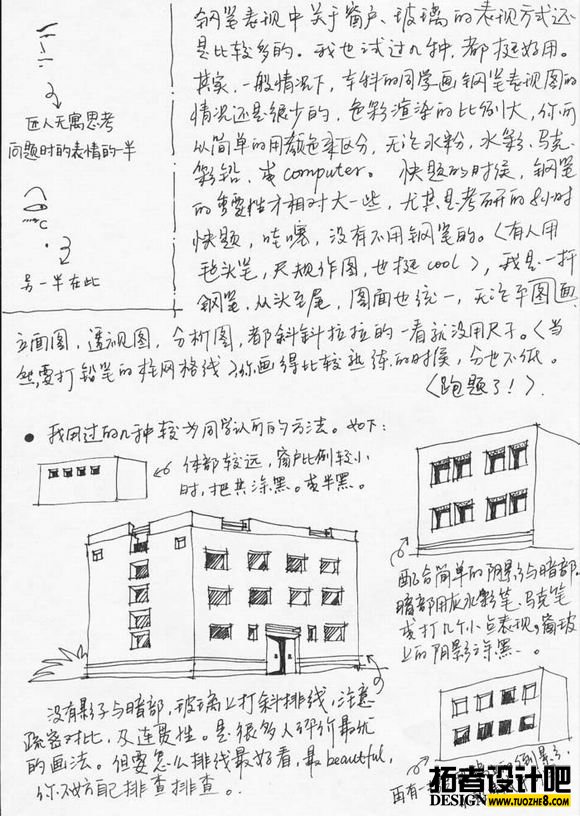 匠人无寓思考
问题时的表情的一半
另一半在此
钢笔表现中关于窗户、玻璃的表现方式还
是比较多的。我也试过几种,都挺好用。
其实,一般情况下,本科的同学画钢笔表现图的
情况还是很少的,色彩渲染的比例大,你而
从简单的用颜色来区分,无论水粉,水彩,马克
彩铅,或computer。快题的时候,钢笔
的重要性才相对大一些,尤其是考研的8小时
快题,哇噻,没有不用钢笔的。(有人用
毛头笔,尺规作图,也挺cool),我是一杆
钢笔,从头至尾,图面也统一,无论平图面
立面图,透视图,分析图,都斜斜拉拉的一看就没用尺子。(当
然,要打铅笔的柱网格线)你画得比较熟练的时候,分也不低。
(跑题了!)
● 我用过的几种较为同学认可的方法。如下:
体部较远,窗户比例较小
时,把其涂黑。或半黑。
配合简单的阴影与暗部。
暗部用灰水彩笔、马克笔
或打几个小点表现。窗玻
上的阴影涂黑。
没有影子与暗部,玻璃上打斜排线,注意
疏密对比,及连贯性。是很多人评价最优
的画法。但要怎么排线最好看,最beautiful,
你不妨自己排查排查。
画有一
倒影
拓者设计吧
DESIGN WWW.TUOZHE8.COM